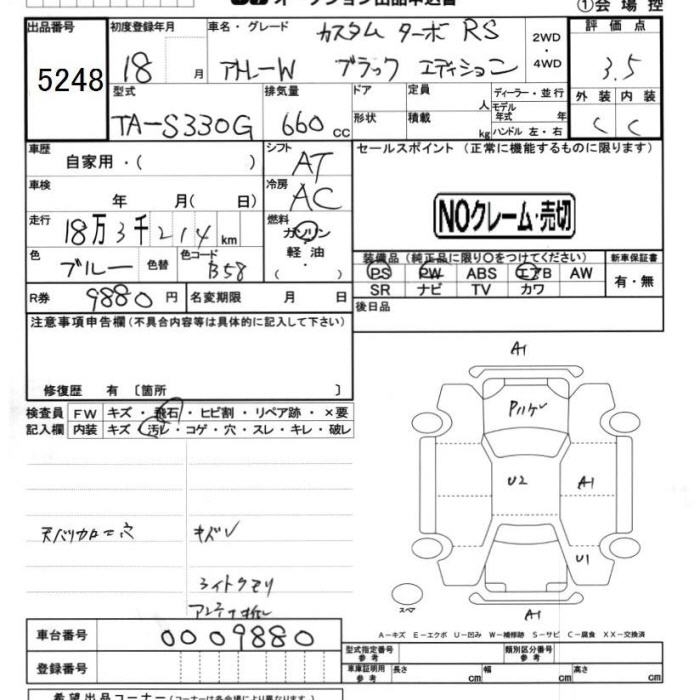 オークション出品申込書
①会場控
出品番号 5248
初度登録年月 18 月
車名・グレード カスタム ターボ RS
アトレーW ブラック エディション
2WD・4WD
評価点 3.5
型式 TA-S330G
排気量 660 cc
ドア 形状
定員 人
積載 kg
ディーラー・並行
モデル年式 年
ハンドル 左・右
外装 C 内装 C
車歴 自家用・( )
シフト AT
セールスポイント(正常に機能するものに限ります)
車検 年 月( 日)
冷房 AC
NOクレーム・売切
走行 18万3千214km
燃料 ガソリン・軽油・( )
色 ブルー 色替 色コード B58
装備品(純正品に限り○をつけてください)
PS PW ABS エアB AW
SR ナビ TV カワ
新車保証書 有・無
R券 9880円 名変期限 月 日
後日品
注意事項申告欄(不具合内容等は具体的に記入して下さい)
修復歴 有 〔箇所 〕
検査員記入欄
FW キズ・飛石・ヒビ割・リペア跡・×要
内装 キズ・汚レ・コゲ・穴・スレ・キレ・破レ
天バリカロ＝穴 キズレ
ライトクモリ
アンテナ折レ
A1
Pハゲ
U2
A1
U1
スペア
A1
A－キズ E－エクボ U－凹み W－補修跡 S－サビ C－腐食 XX－交換済
車台番号 0009880
登録番号
型式指定番号 参考
類別区分番号 参考
車庫証明用 参考 長さ cm 幅 cm 高さ cm
希望出品コーナー(コーナーは各会場により異なります)